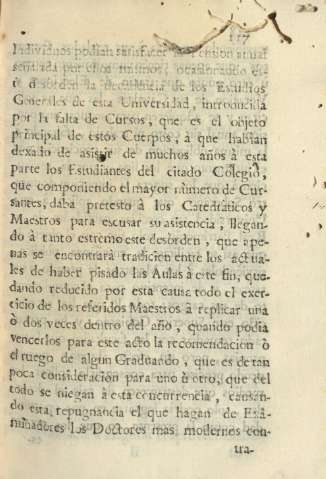 117
Individuos podian satisfacer la pension anual
señalada por ellos mismos; ocasionando es-
te desorden la decadencia de los Estudios
Generales de esta Universidad, introducida
por la falta de Cursos, que es el objeto
principal de estos Cuerpos, à que habian
dexado de asistir de muchos años à esta
parte los Estudiantes del citado Colegio,
que componiendo el mayor número de Cur-
santes, daba pretesto à los Catedráticos y
Maestros para escusar su asistencia, llegan-
do à tanto estremo este desorden, que ape-
nas se encontrará tradicion entre los actua-
les de haber pisado las Aulas à este fin, que-
dando reducido por esta causa todo el exer-
cicio de los referidos Maestros à replicar una
ò dos veces dentro del año, quando podia
vencerlos para este acto la recomendacion ò
el ruego de algun Graduando, que es de tan
poca consideracion para uno ù otro, que del
todo se niegan à esta concurrencia, causan-
do esta repugnancia el que hagan de Exâ-
minadores los Doctores mas modernos con-
tra-